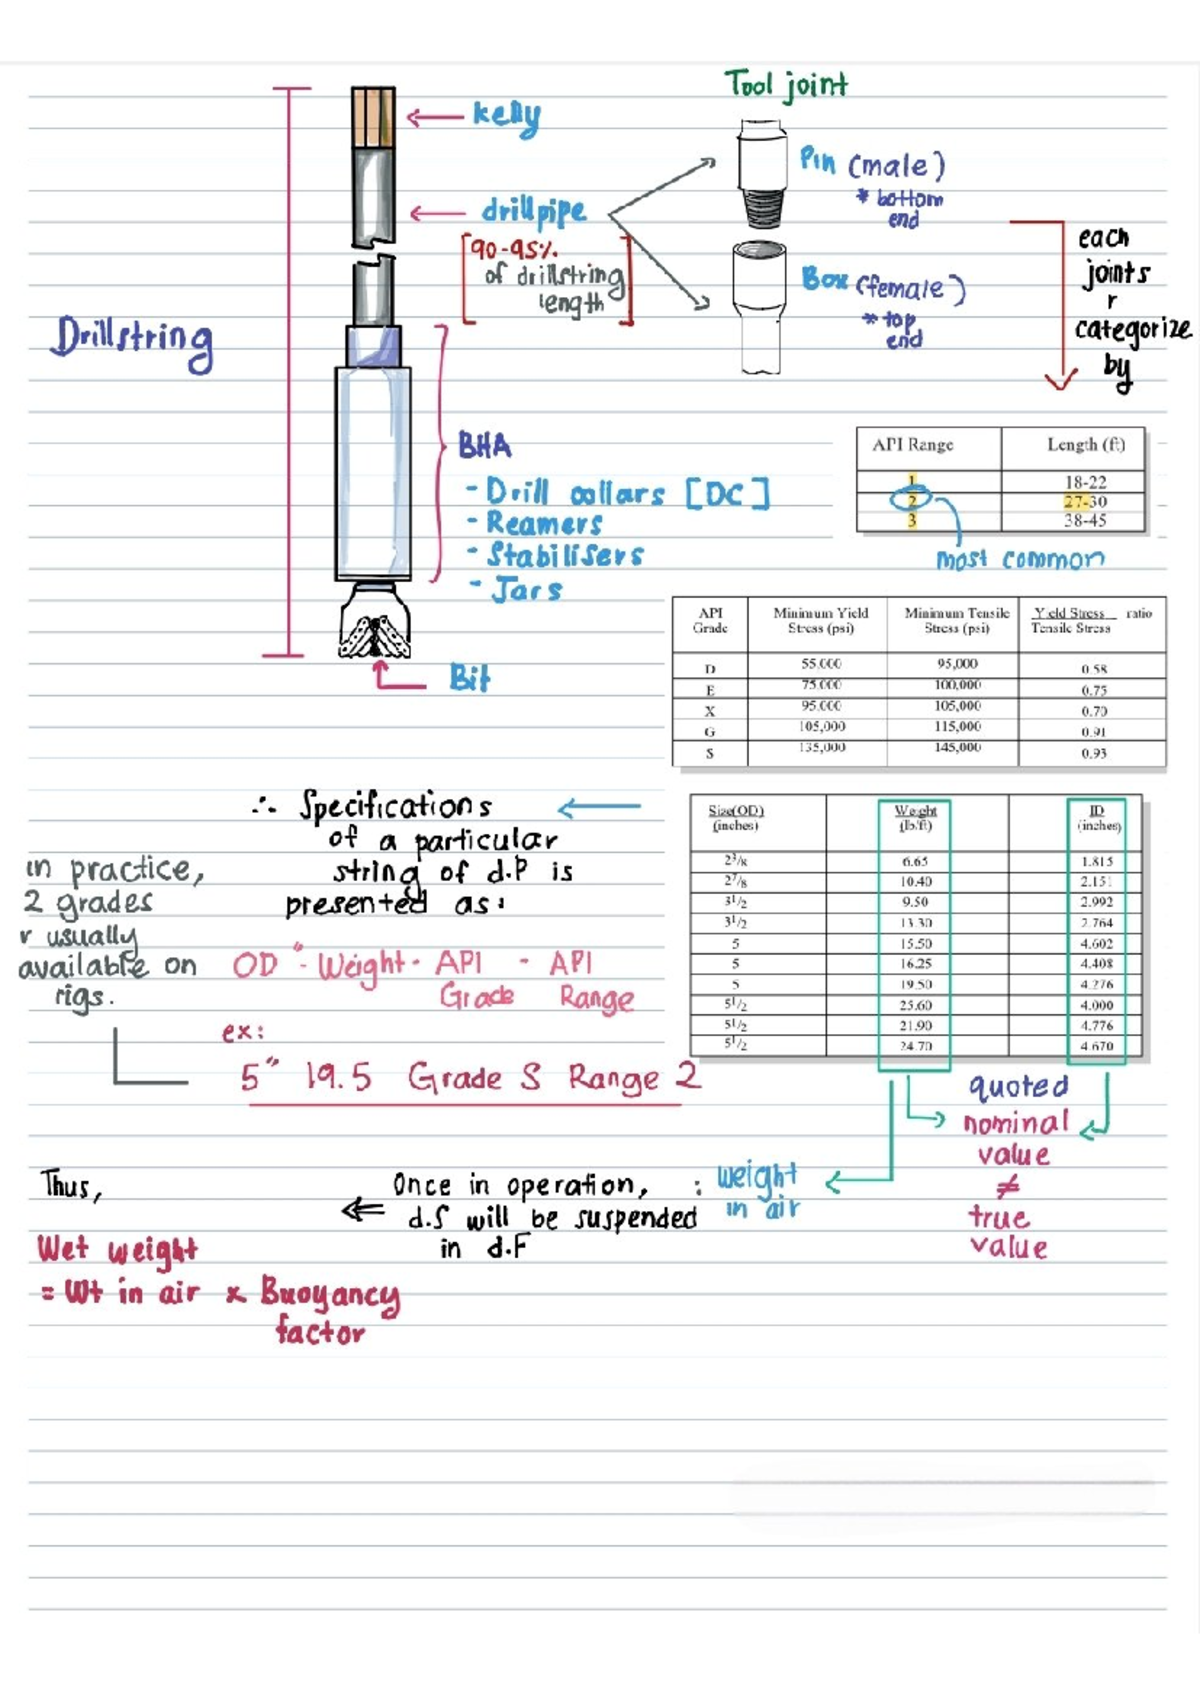 Tool joint
kelly
Pin (male)
* bottom
end
drillpipe
[90-95%
of drillstring
length]
Box (female)
* top
end
each
joints
r
categorize
by
Drillstring
BHA
- Drill collars [DC]
- Reamers
- Stabilisers
- Jars
Bit
API Range Length (ft)
1 18-22
2 27-30
3 38-45
most common
API Grade Minimum Yield Stress (psi) Minimum Tensile Stress (psi) Yield Stress Tensile Stress ratio
D 55,000 95,000 0.58
E 75,000 100,000 0.75
X 95,000 105,000 0.70
G 105,000 115,000 0.91
S 135,000 145,000 0.93
∴ Specifications
of a particular
string of d.P is
presented as:
in practice,
2 grades
r usually
available on
rigs.
OD" - Weight - API Grade - API Range
ex:
5" 19.5 Grade S Range 2
Size(OD) (inches) Weight (lb/ft) ID (inches)
2 3/8 6.65 1.815
2 7/8 10.40 2.151
3 1/2 9.50 2.992
3 1/2 13.30 2.764
5 15.50 4.602
5 16.25 4.408
5 19.50 4.276
5 1/2 25.60 4.000
5 1/2 21.90 4.776
5 1/2 24.70 4.670
quoted
nominal
value
≠
true
value
: weight
in air
Once in operation,
d.S will be suspended
in d.F
Thus,
Wet weight
= Wt in air x Buoyancy
factor